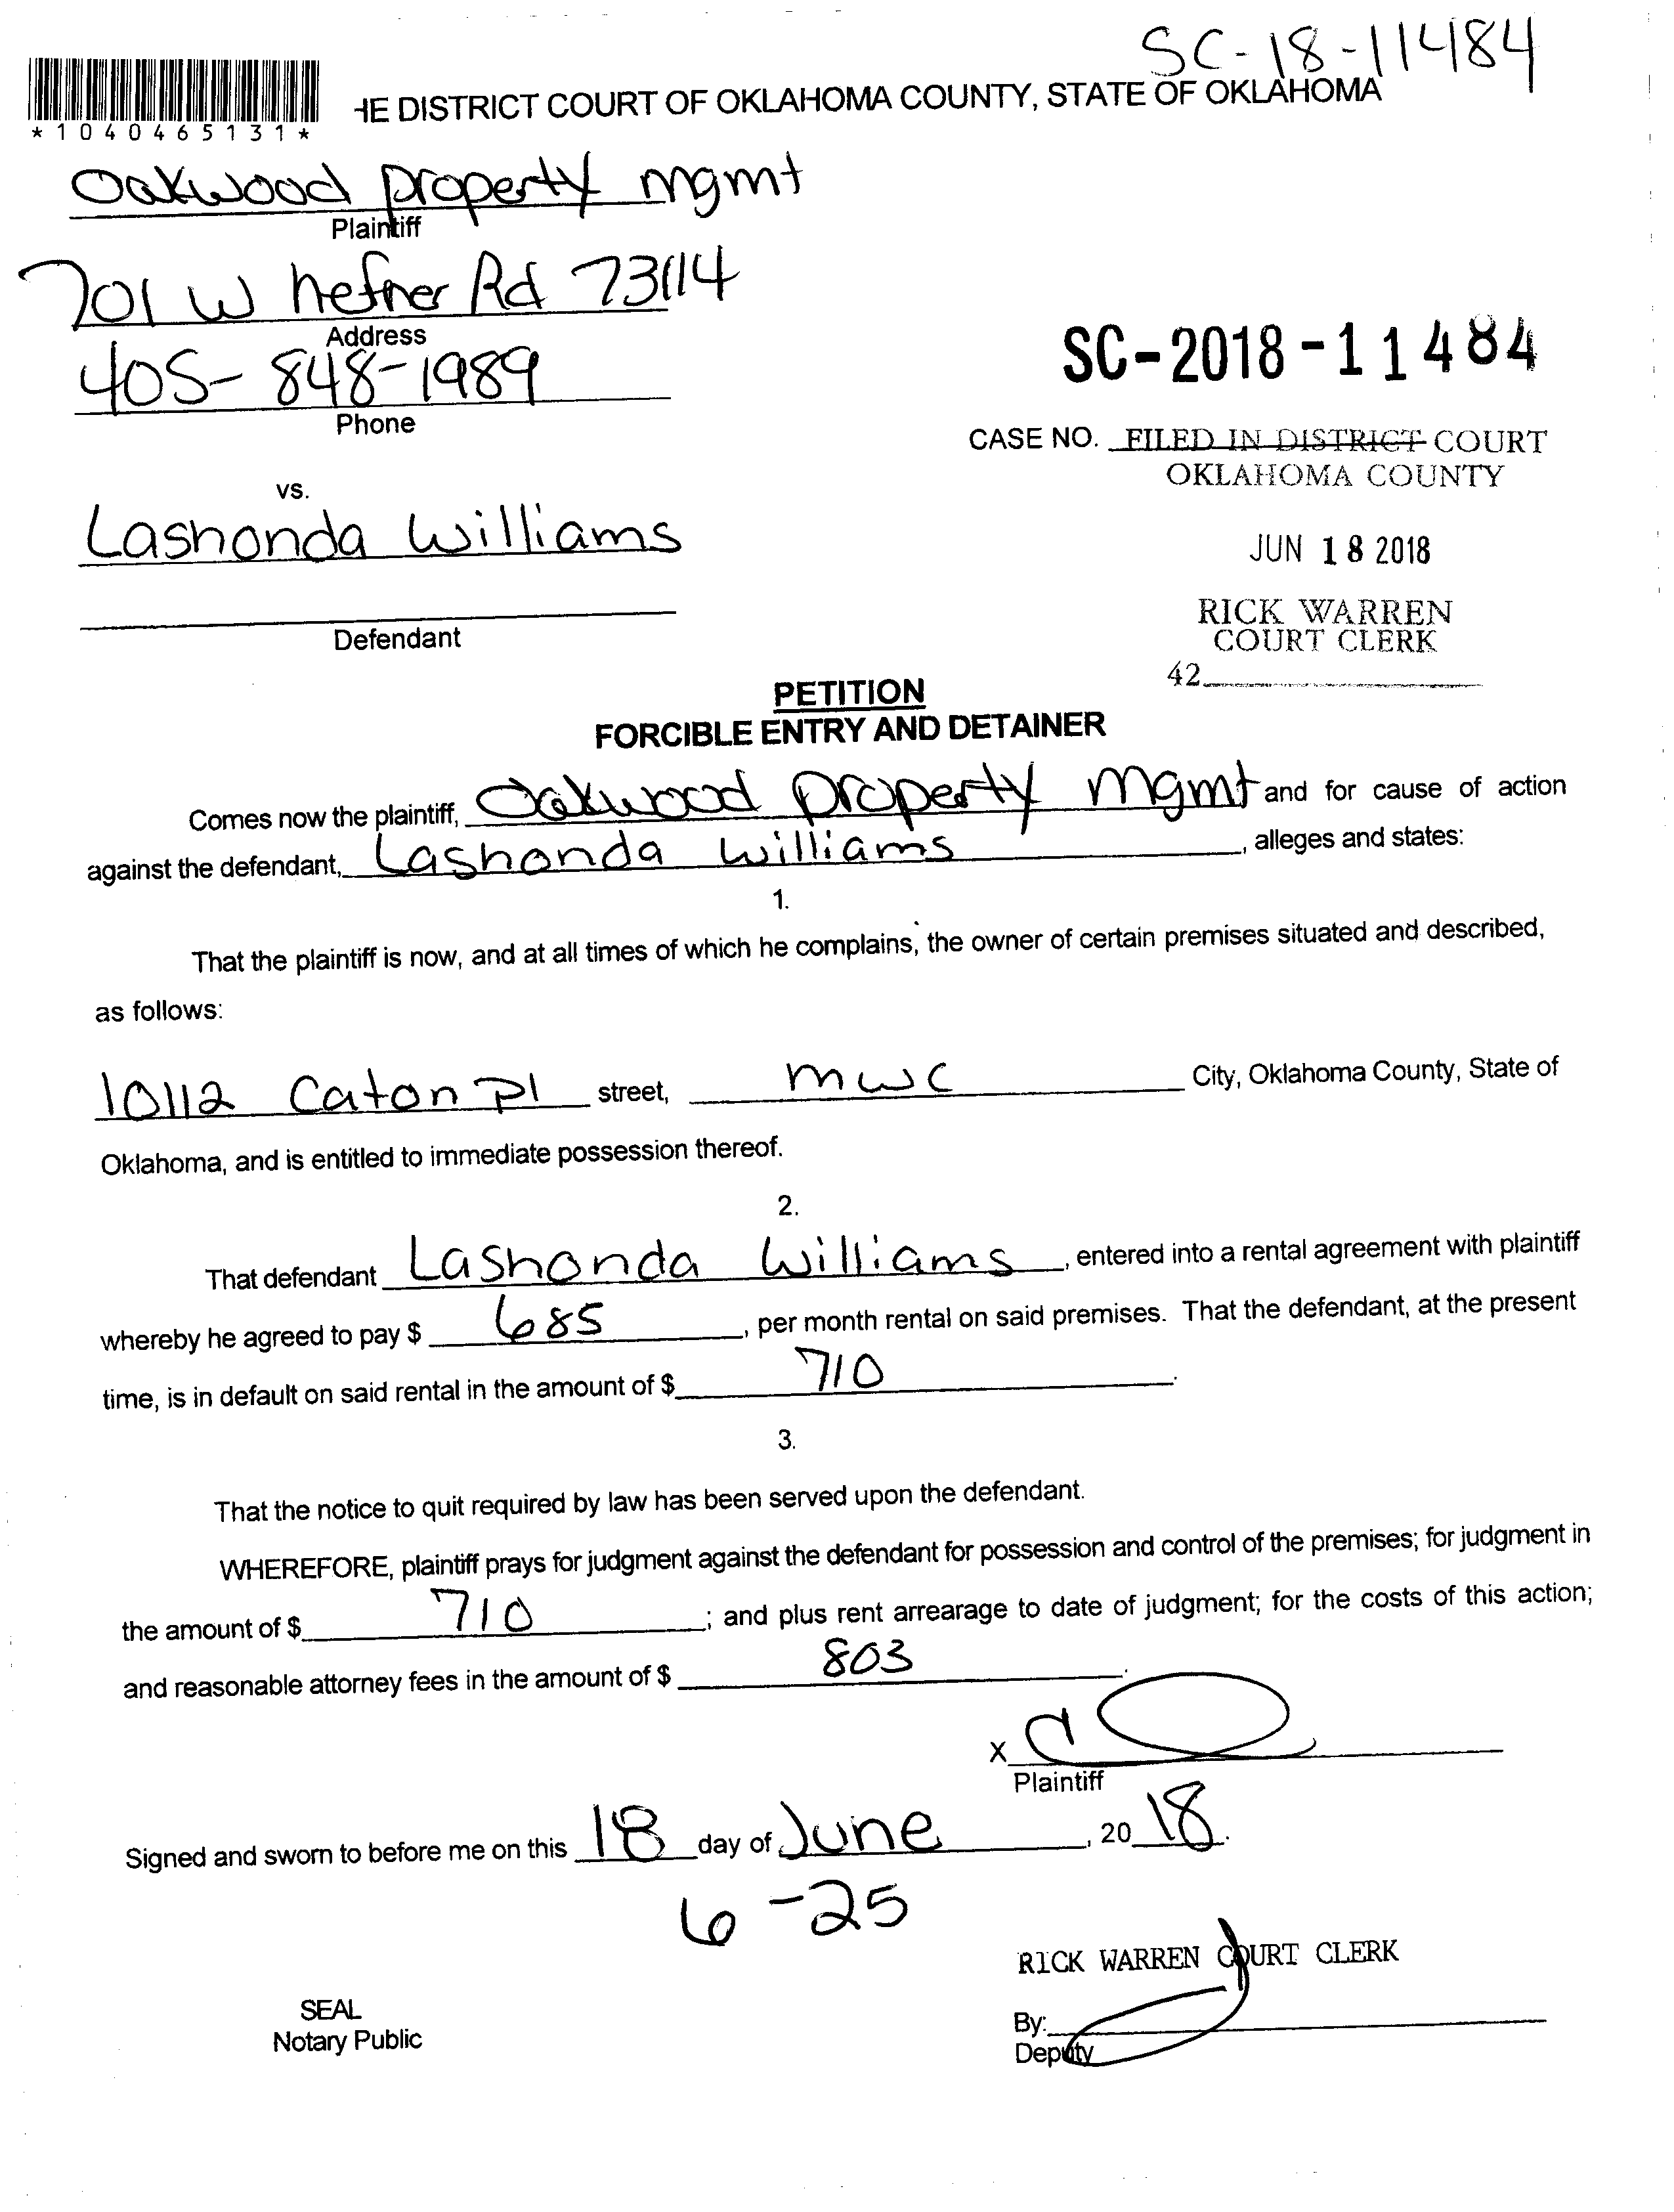 SC-18-11484
*1040465131*
HE DISTRICT COURT OF OKLAHOMA COUNTY, STATE OF OKLAHOMA
Oakwood property mgmt
Plaintiff
701 W hefner Rd 73114
Address
405-848-1989
Phone
SC-2018-11484
CASE NO. FILED IN DISTRICT COURT
OKLAHOMA COUNTY
vs.
Lashonda Williams
JUN 18 2018
Defendant
RICK WARREN
COURT CLERK
42
PETITION
FORCIBLE ENTRY AND DETAINER
Comes now the plaintiff, Oakwood property mgmt and for cause of action
against the defendant, Lashonda Williams, alleges and states:
1.
That the plaintiff is now, and at all times of which he complains, the owner of certain premises situated and described,
as follows:
10112 Caton Pl street, mwc City, Oklahoma County, State of
Oklahoma, and is entitled to immediate possession thereof.
2.
That defendant Lashonda Williams, entered into a rental agreement with plaintiff
whereby he agreed to pay $ 685, per month rental on said premises. That the defendant, at the present
time, is in default on said rental in the amount of $ 710.
3.
That the notice to quit required by law has been served upon the defendant.
WHEREFORE, plaintiff prays for judgment against the defendant for possession and control of the premises; for judgment in
the amount of $ 710; and plus rent arrearage to date of judgment; for the costs of this action;
and reasonable attorney fees in the amount of $ 803.
X
Plaintiff
Signed and sworn to before me on this 18 day of June, 20 18.
6-25
RICK WARREN COURT CLERK
SEAL
Notary Public
By:
Deputy